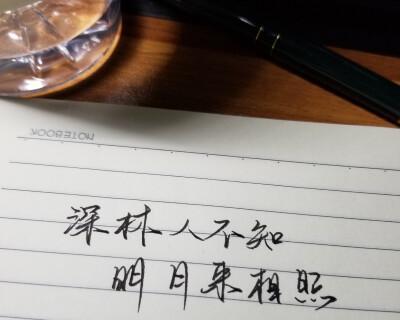 NOTEBOOK
深林人不知
明月来相照